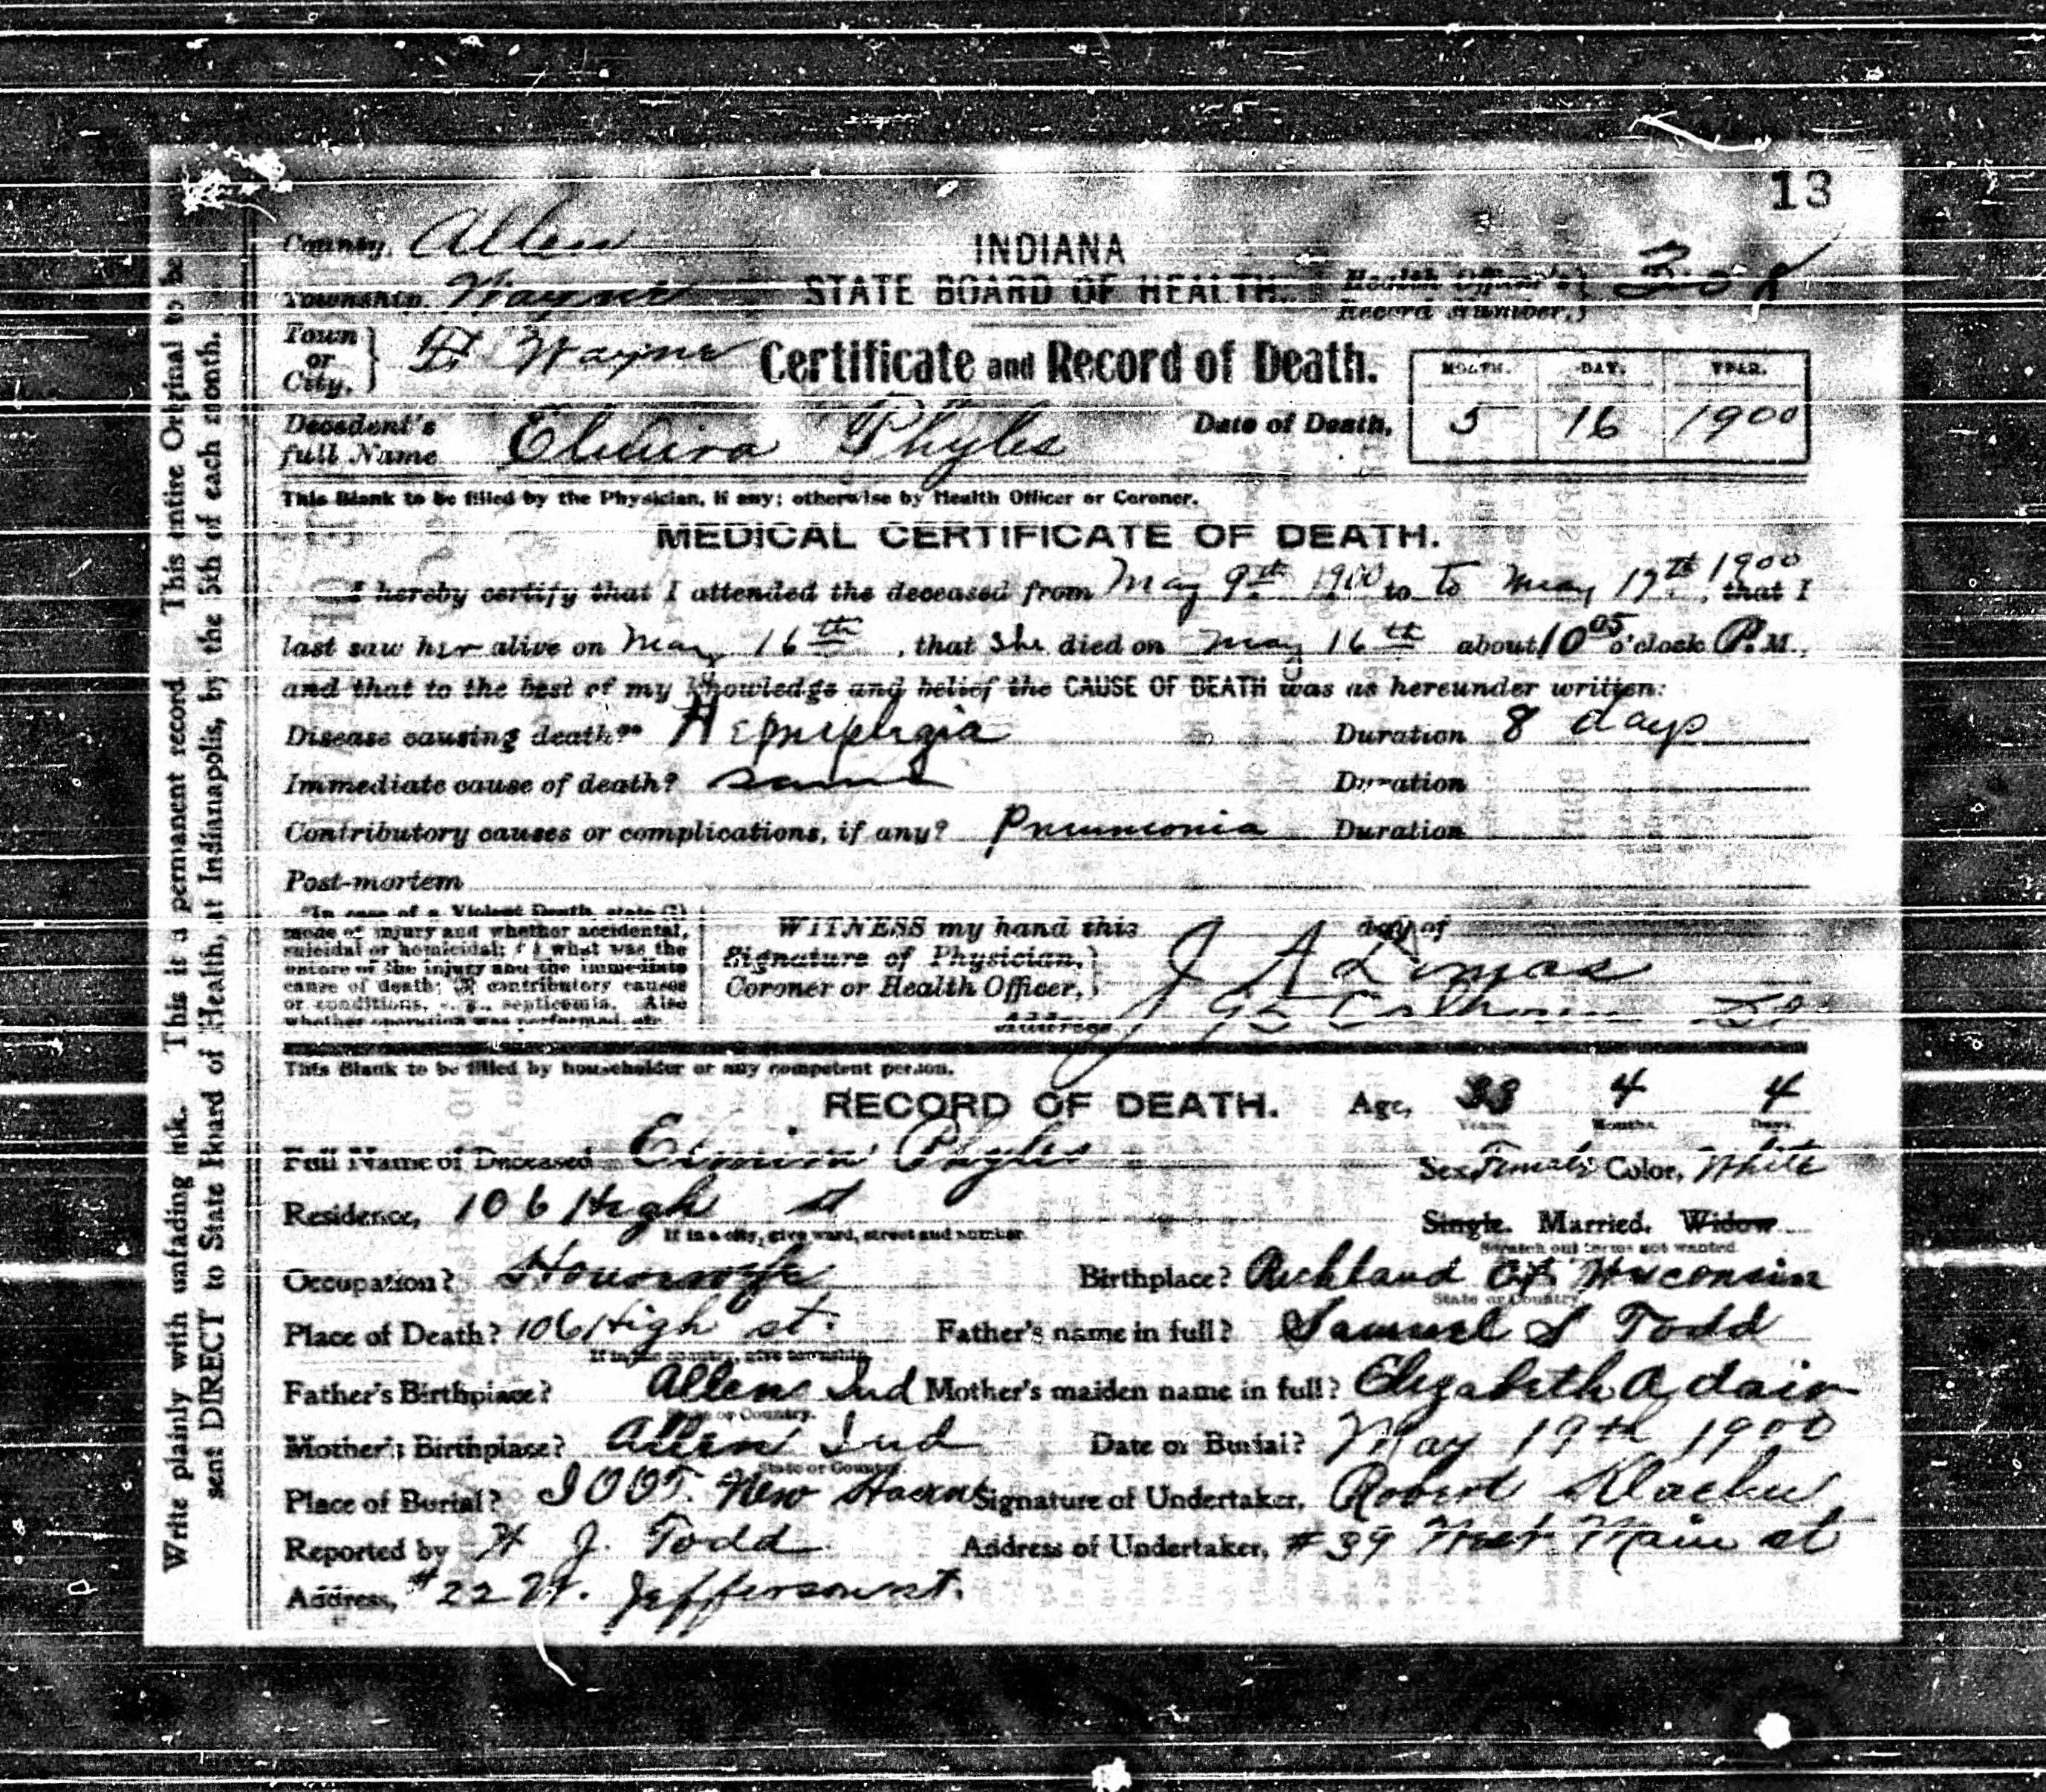 13
County, Allen
INDIANA
Township, Wayne
STATE BOARD OF HEALTH.
Health Officer's Record Number, 308
Town or City, Ft Wayne
Certificate and Record of Death.
MONTH. DAY. YEAR.
Decedent's full Name Elmira Phyles
Date of Death, 5 16 1900
This Blank to be filled by the Physician, if any; otherwise by Health Officer or Coroner.
MEDICAL CERTIFICATE OF DEATH.
I hereby certify that I attended the deceased from May 9th 1900 to To May 17th 1900, that I
last saw her alive on May 16th, that She died on May 16th about 10 05 o'clock P. M.,
and that to the best of my knowledge and belief the CAUSE OF DEATH was as hereunder written:
Disease causing death?** Duration 8 days
Immediate cause of death? same Duration
Contributory causes or complications, if any? Pneumonia Duration
Post-mortem
**In case of a Violent Death, state (1)
mode of injury and whether accidental,
suicidal or homicidal; (2) what was the
nature of the injury and the immediate
cause of death; (3) contributory causes
or conditions, e. g., septicemia. Also
whether operation was performed, etc.
WITNESS my hand this day of
Signature of Physician, Coroner or Health Officer, J A
Address 95 Calhoun
This Blank to be filled by householder or any competent person.
RECORD OF DEATH.
Age, 33 Years. 4 Months. 4 Days.
Full Name of Deceased Elmira Phyles
Sex Female Color, White
Residence, 106 High st
If in a city, give ward, street and number.
Single. Married. Widow
Scratch out terms not wanted.
Occupation? Housewife
Birthplace? Richland Wisconsin
State or Country.
Place of Death? 106 High st.
If in the country, give township.
Father's name in full? Samuel S Todd
Father's Birthplace? Allen Ind
State or Country.
Mother's maiden name in full? Elizabeth Adair
Mother's Birthplace? Allen Ind
State or Country.
Date of Burial? May 19th 1900
Place of Burial? IOOF. New Haven
Signature of Undertaker, Robert
Reported by H J. Todd
Address of Undertaker, #39 West Main st
Address, #22 W. Jefferson st.
Write plainly with unfading ink. This is a permanent record. This entire Original to be
sent DIRECT to State Board of Health, at Indianapolis, by the 5th of each month.